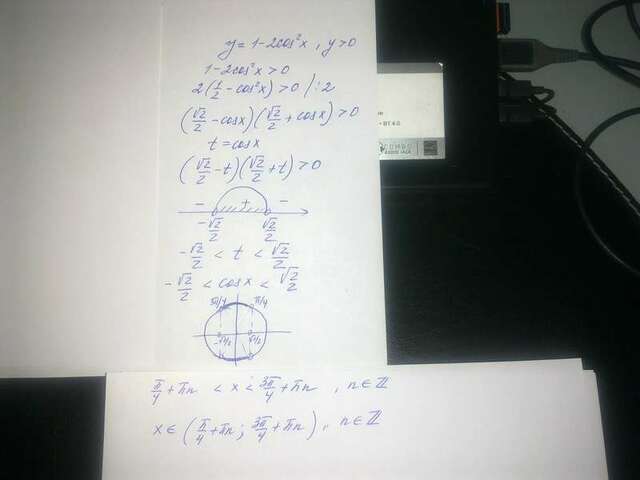 y = 1 - 2cos²x , y > 0
1 - 2cos²x > 0
2(1/2 - cos²x) > 0 /:2
(√2/2 - cosx)(√2/2 + cosx) > 0
t = cosx
(√2/2 - t)(√2/2 + t) > 0
- + -
-√2/2 √2/2
-√2/2 < t < √2/2
-√2/2 < cosx < √2/2
3π/4 π/4
-√2/2 √2/2
π/4 + πn < x < 3π/4 + πn , n ∈ ℤ
x ∈ (π/4 + πn ; 3π/4 + πn), n ∈ ℤ
BT 4.0
COMBO
AUDIO JACK